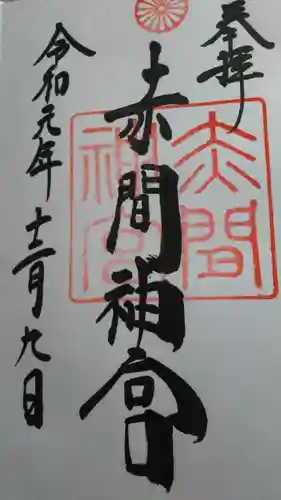 奉拝
赤間神宮
赤間神宮
令和元年十二月九日